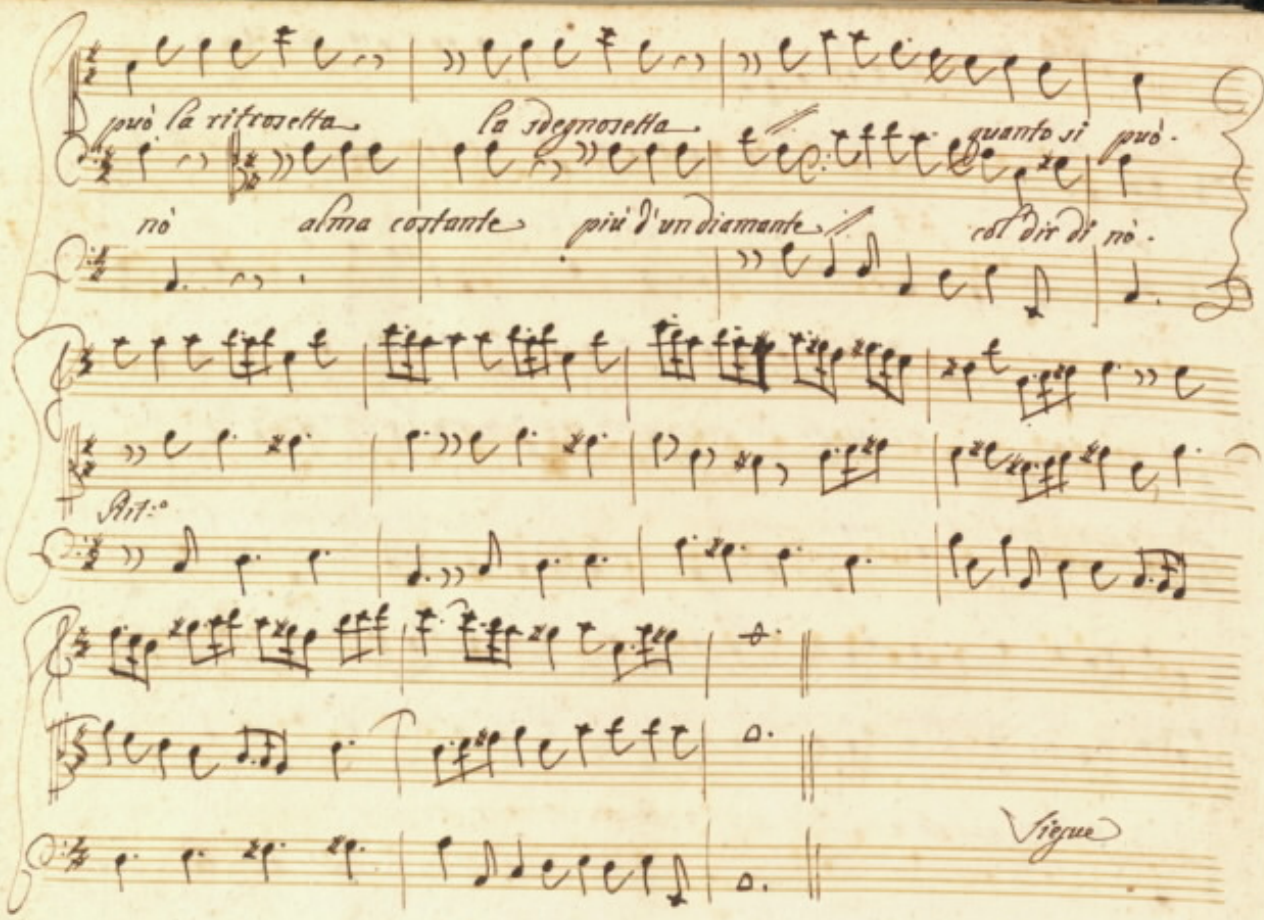 può la ritrosetta la sdegnosetta quanto si può.
nò alma costante più d'un diamante col dir di nò.
Rit:º
Siegue